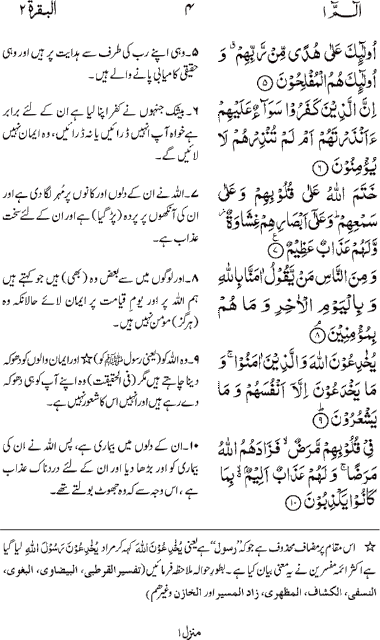 البقرة ٢
۴
الٓمّٓ ١
أُولٰٓئِكَ عَلٰى هُدًى مِّنْ رَّبِّهِمْ ۗ وَ
أُولٰٓئِكَ هُمُ الْمُفْلِحُوْنَ ۝٥
إِنَّ الَّذِيْنَ كَفَرُوْا سَوَآءٌ عَلَيْهِمْ
ءَاَنْذَرْتَهُمْ اَمْ لَمْ تُنْذِرْهُمْ لَا
يُؤْمِنُوْنَ ۝٦
خَتَمَ اللّٰهُ عَلٰى قُلُوْبِهِمْ وَعَلٰى
سَمْعِهِمْ ۗ وَعَلٰٓى اَبْصَارِهِمْ غِشَاوَةٌ ۫
وَّلَهُمْ عَذَابٌ عَظِيْمٌ ۝٧
وَمِنَ النَّاسِ مَنْ يَّقُوْلُ اٰمَنَّا بِاللّٰهِ
وَ بِالْيَوْمِ الْاٰخِرِ وَ مَا هُمْ
بِمُؤْمِنِيْنَ ۝٨
يُخٰدِعُوْنَ اللّٰهَ وَالَّذِيْنَ اٰمَنُوْا ۚ وَ
مَا يَخْدَعُوْنَ اِلَّآ اَنْفُسَهُمْ وَ مَا
يَشْعُرُوْنَ ۝٩
فِيْ قُلُوْبِهِمْ مَّرَضٌ ۙ فَزَادَهُمُ اللّٰهُ
مَرَضًا ۚ وَلَهُمْ عَذَابٌ اَلِيْمٌ ۢ ۙ بِمَا
كَانُوْا يَكْذِبُوْنَ ۝١٠
۵۔ وہی اپنے رب کی طرف سے ہدایت پر ہیں اور وہی
حقیقی کامیابی پانے والے ہیں۔
۶۔ بیشک جنہوں نے کفر اپنا لیا ہے ان کے لئے برابر
ہے خواہ آپ انہیں ڈرائیں یا نہ ڈرائیں، وہ ایمان نہیں
لائیں گے۔
۷۔ اللہ نے ان کے دلوں اور کانوں پر مُہر لگا دی ہے اور
ان کی آنکھوں پر پردہ (پڑ گیا) ہے اور ان کے لئے سخت
عذاب ہے۔
۸۔ اور لوگوں میں سے بعض وہ (بھی) ہیں جو کہتے ہیں
ہم اللہ پر اور یومِ قیامت پر ایمان لائے حالانکہ وہ
(ہرگز) مومن نہیں ہیں۔
۹۔ وہ اللہ کو (یعنی رسول ﷺ کو) ☆ اور ایمان والوں کو دھوکہ
دینا چاہتے ہیں مگر (فی الحقیقت) وہ اپنے آپ کو ہی دھوکہ
دے رہے ہیں اور انہیں اس کا شعور نہیں ہے۔
۱۰۔ ان کے دلوں میں بیماری ہے، پس اللہ نے ان کی
بیماری کو اور بڑھا دیا اور ان کے لئے دردناک عذاب
ہے، اس وجہ سے کہ وہ جھوٹ بولتے تھے۔
☆ اس مقام پر مضاف محذوف ہے جو کہ ”رسول“ ہے یعنی یُخٰدِعُوْنَ اللّٰہَ کہہ کر مراد یُخٰدِعُوْنَ رَسُوْلَ اللّٰہِ لیا گیا
ہے۔ اکثر ائمہ مفسرین نے یہ معنی بیان کیا ہے۔ بطورِ حوالہ ملاحظہ فرمائیں (تفسیر القرطبی، البیضاوی، البغوی،
النسفی، الکشاف، المظھری، زاد المسیر اور الخازن وغیرھم)
منزل ١